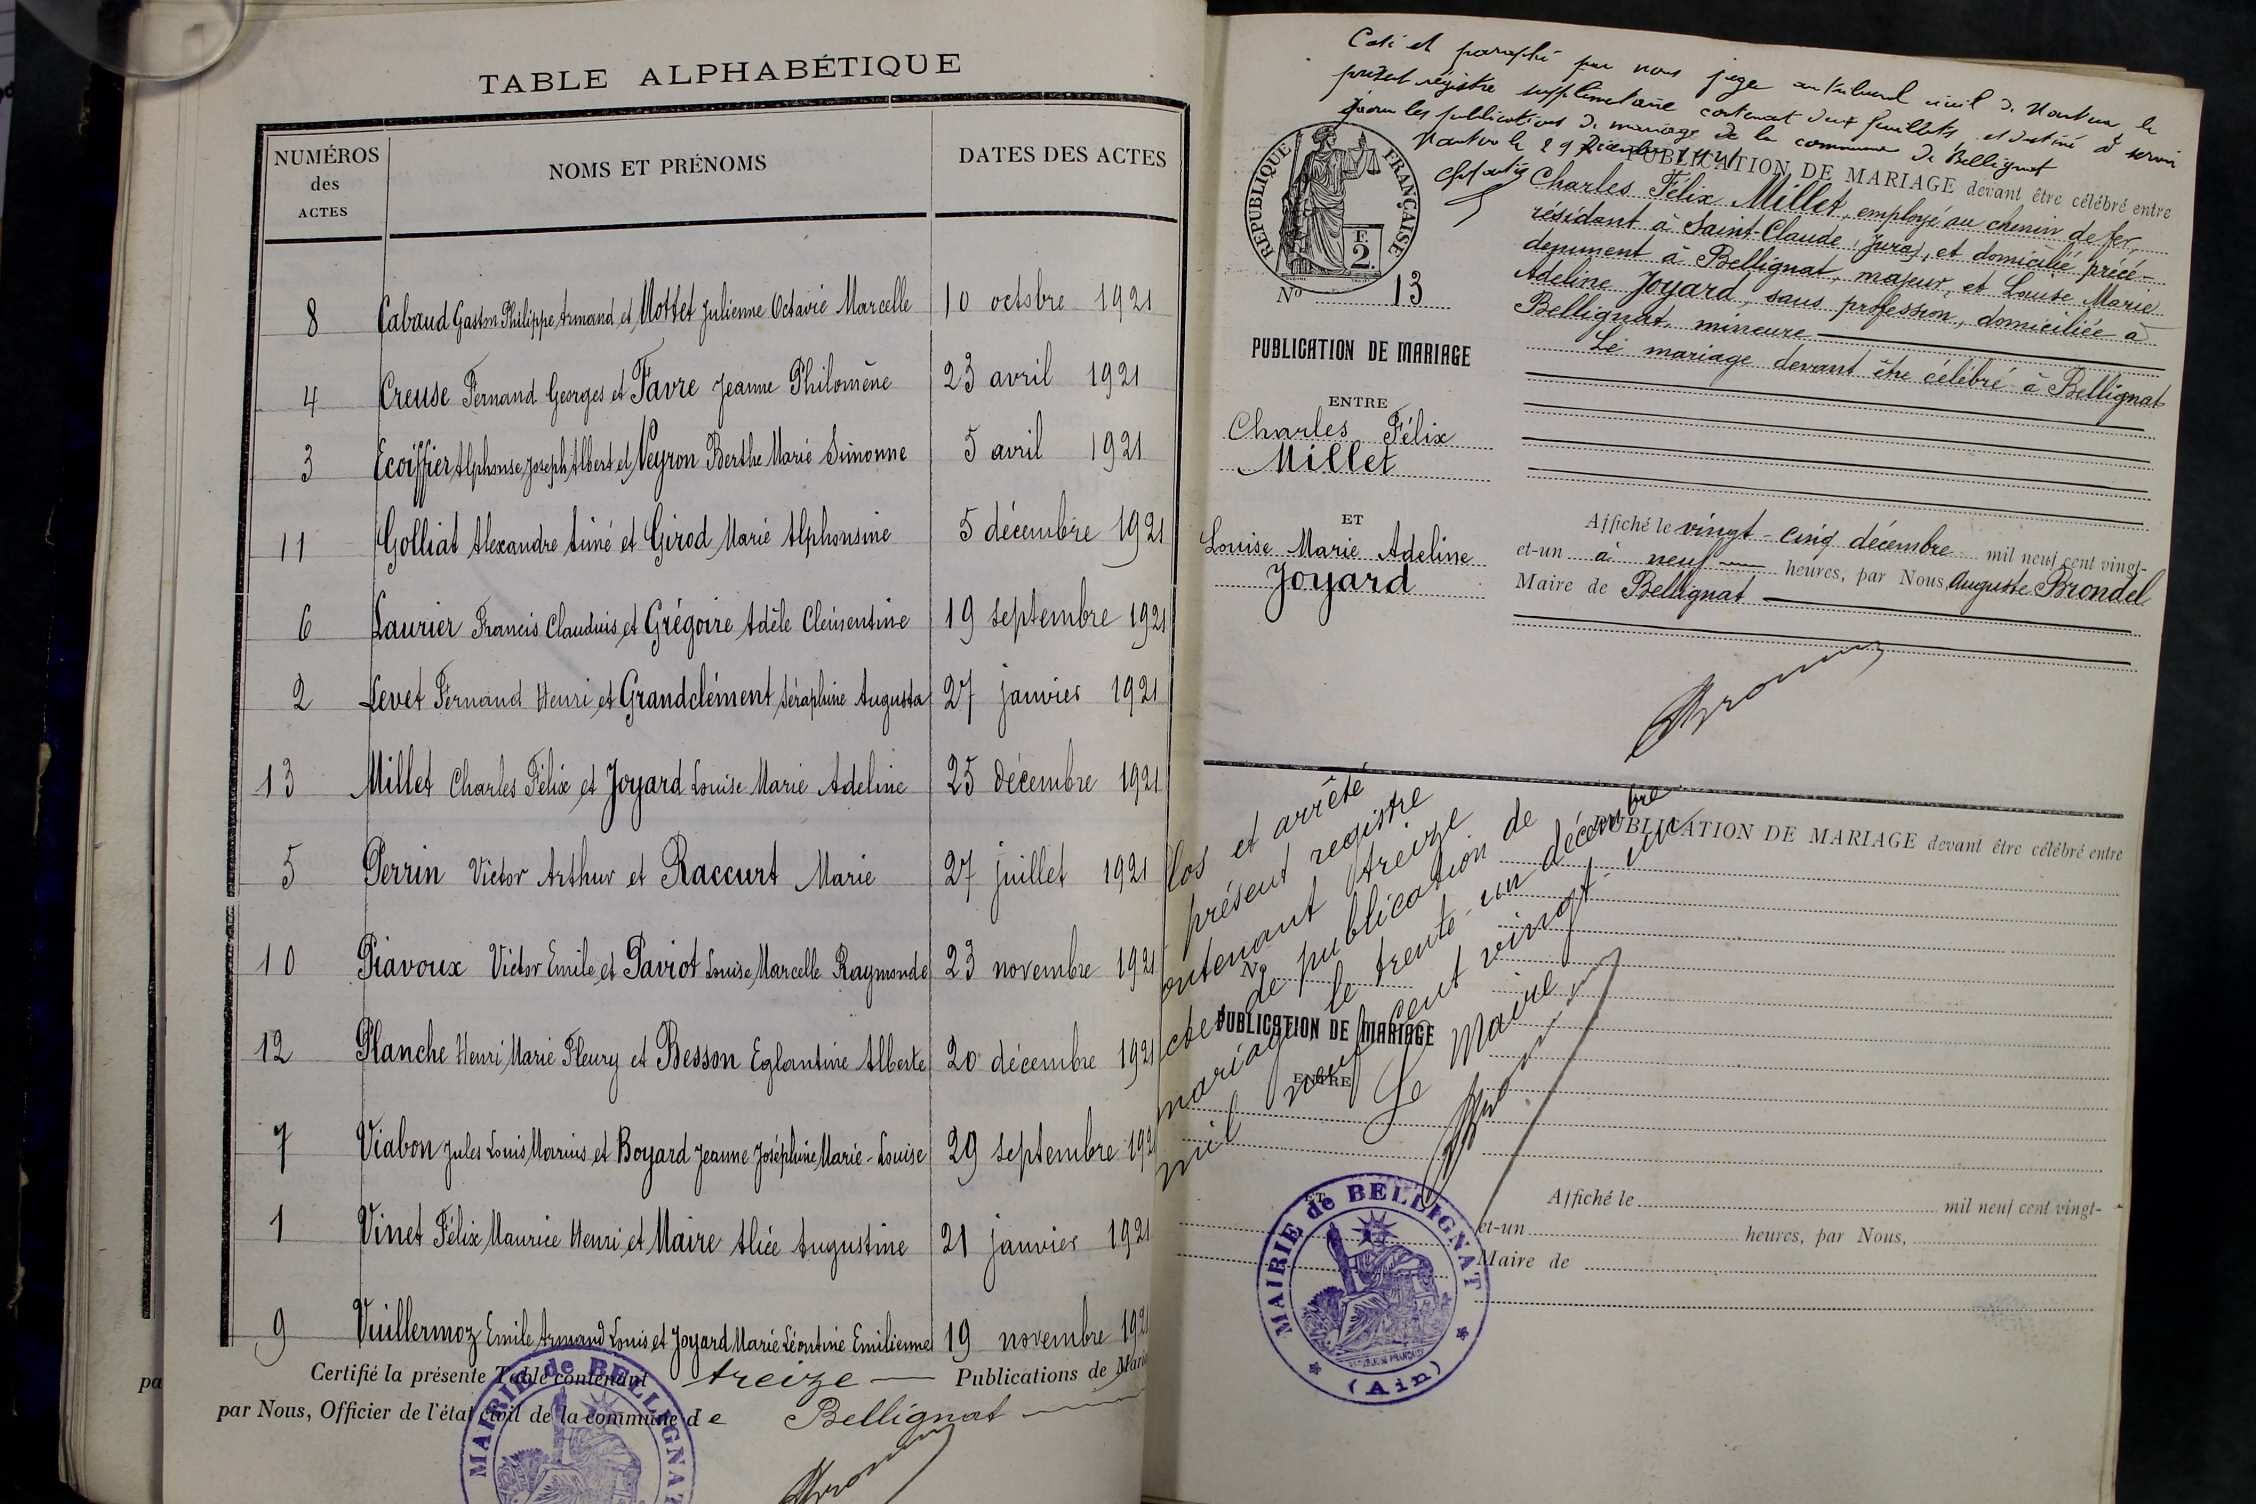 TABLE ALPHABÉTIQUE
NUMÉROS des ACTES NOMS ET PRÉNOMS DATES DES ACTES
8 Cabaud Gaston Philippe Armand et Mottet Julienne Octavie Marcelle 10 octobre 1921
4 Creuse Fernand Georges et Favre Jeanne Philomène 23 avril 1921
3 Ecoiffier Alphonse Joseph Albert et Veyron Berthe Marie Simonne 5 avril 1921
11 Golliat Alexandre Aimé et Girod Marie Alphonsine 5 décembre 1921
6 Laurier Francis Claudius et Grégoire Adèle Clémentine 19 septembre 1921
2 Levet Fernand Henri et Grandclément Séraphine Augusta 27 janvier 1921
13 Millet Charles Félix et Joyard Louise Marie Adeline 25 décembre 1921
5 Perrin Victor Arthur et Raccurt Marie 27 juillet 1921
10 Piavoux Victor Emile et Paviot Louise Marcelle Raymonde 23 novembre 1921
12 Planche Henri Marie Fleury et Besson Eglantine Alberte 20 décembre 1921
7 Viabon Jules Louis Marius et Boyard Jeanne Joséphine Marie-Louise 29 septembre 192
1 Vinet Félix Maurice Henri et Maire Alice Augustine 21 janvier 1921
9 Vuillermoz Emile Armand Louis et Joyard Marie Léontine Emilienne 19 novembre 1921
Certifié la présente Table contenant treize Publications de Maria
par Nous, Officier de l'état civil de la commune de Bellignat
MAIRIE de BELLIGNAT
pa
Coté et paraphé par nous juge au tribunal civil de Nantua le
présent régistre supplémentaire contenant deux feuillets et destiné à servir
pour les publications de mariage de la commune de Bellignat
Nantua le 29 Décembre 1921
RÉPUBLIQUE FRANÇAISE
F. 2.
No 13
PUBLICATION DE MARIAGE
ENTRE
Charles Félix
Millet
ET
Louise Marie Adeline
Joyard
PUBLICATION DE MARIAGE devant être célébré entre
Charles Félix Millet, employé au chemin de fer,
résidant à Saint-Claude (Jura), et domicilié précé-
demment à Bellignat, majeur, et Louise Marie
Adeline Joyard, sans profession, domiciliée à
Bellignat, mineure
Le mariage devant être célébré à Bellignat
Affiché le vingt-cinq décembre mil neuf cent vingt-
et-un à neuf heures, par Nous, Auguste Brondel
Maire de Bellignat
Clos et arrêté
présent registre
contenant treize
actes de publication de
mariage le trente-un décembre
mil neuf cent vingt-un
Le Maire
No
PUBLICATION DE MARIAGE
ENTRE
ET
PUBLICATION DE MARIAGE devant être célébré entre
Affiché le mil neuf cent vingt-
et-un heures, par Nous,
Maire de
MAIRIE de BELLIGNAT
RÉPUBLIQUE FRANÇAISE
(Ain)